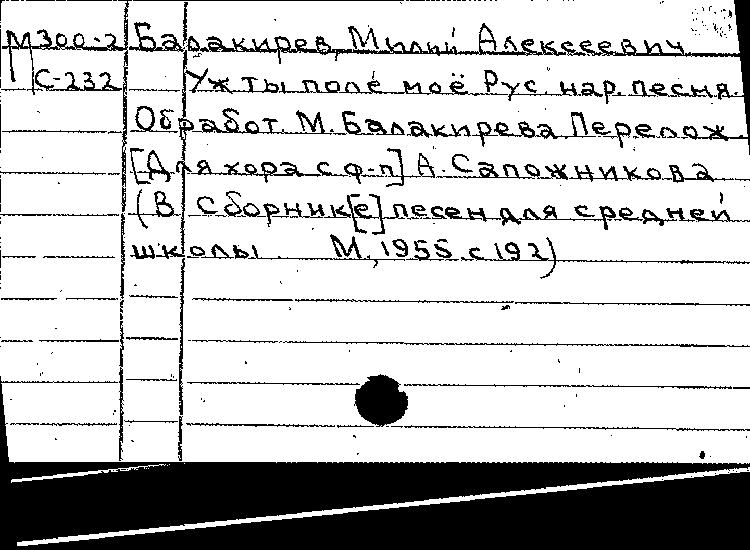 М300-2 Балакирев, Милий Алексеевич
С-232 Уж ты поле моё Рус. нар. песня.
Обработ. М. Балакирева Перелож.
[Для хора с ф-п] А. Сапожникова
(В Сборник[е] песен для средней
школы. М., 1955. с 192)